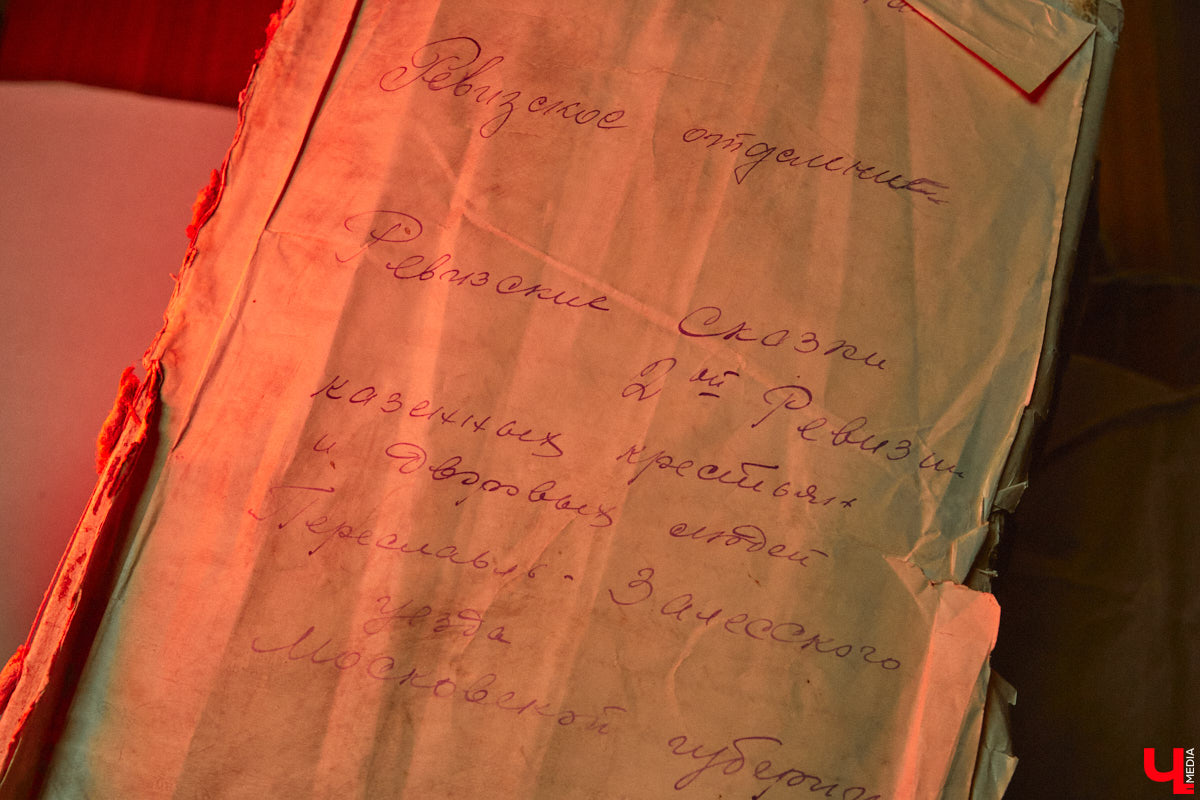 Ревизское отделение
Ревизские Сказки
2ой Ревизии
казенных крестьян
и дворовых людей
Переславль-Залесского
уезда
Московской губернии
Ч MEDIA